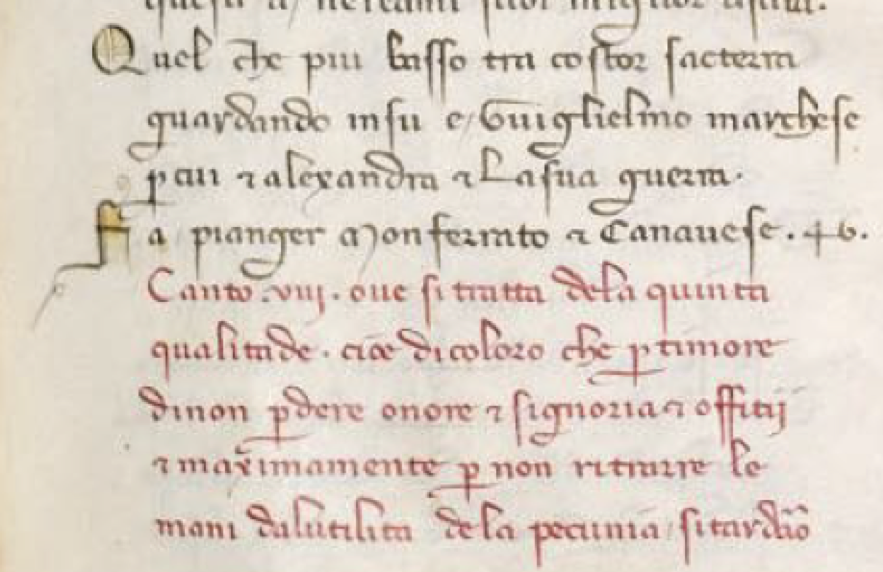 Quel che piu basso tra costor satterra
guardando insu e Guiglielmo marchese
p cui ⁊ alexandra ⁊ La sua guerra.
Fa pianger Monferrato ⁊ Canavese . 46.
Canto .viij. ove si tratta dela quinta
qualitade . cioe di coloro che p timore
di non pdere onore ⁊ signoria ⁊ offitij
⁊ maximamente p non ritrarre le
mani dalutilita dela pecunia / si tardāo